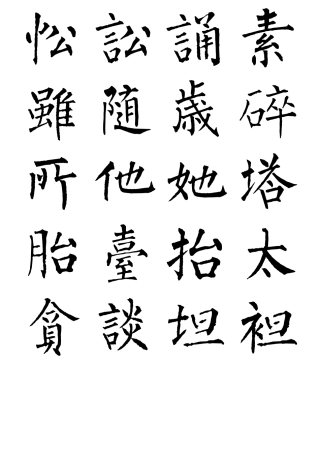 忪訟誦素
雖隨歳碎
所他她塔
胎臺抬太
貪談坦袒